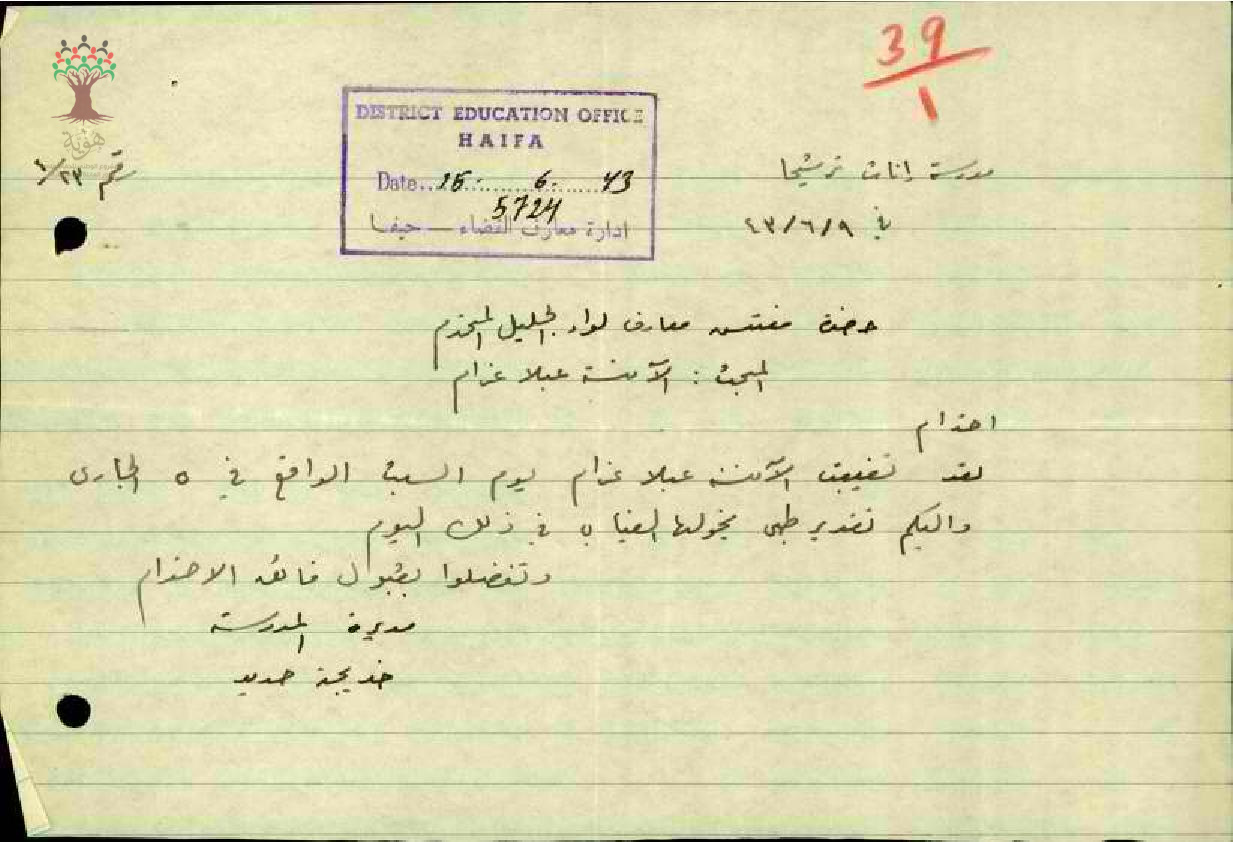 39
1
DISTRICT EDUCATION OFFICE
HAIFA
Date..15......6......43
5724
ادارة معارف القضاء — حيفا
هوية
رقم ٢٣/١
مدرسة اناث ترشيحا
في ٤٣/٦/٩
حضرة مفتش معارف لواء الجليل المحترم
المبحث : الآنسة عبلا عزام
احترام
لقد تغيبت الآنسة عبلا عزام يوم السبت الواقع في ٥ الجاري
واليكم تقدير طبي يخولها الغياب في ذلك اليوم
وتفضلوا بقبول فائق الاحترام
مديرة المدرسة
خديجة حديد